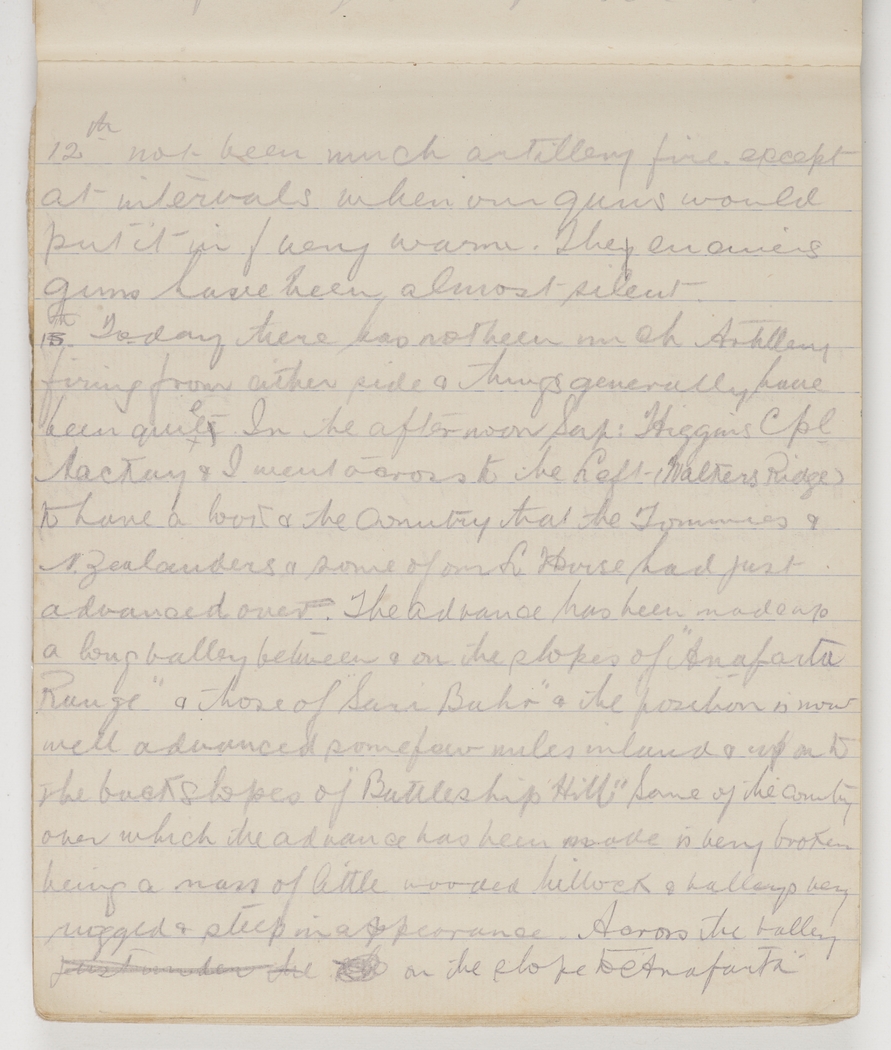 12th not been much artillery fire except
at intervals when our guns would
put it in very warm. The enemies
guns have been almost silent.
13th. Today there has not been much Artillery
firing from either side & things generally have
been quiet. In the afternoon Sap: Higgins Cpl
Mackay & I went across to the Left (Walkers Ridge)
to have a look & the Country that the Tommies &
N. Zealanders & some of our L Horse had just
advanced over. The advance has been made up
a long valley between & on the slopes of "Anafarta
Range" & those of "Sari Bahr" & the position is now
well advanced some few miles inland & up on to
the back slopes of "Battleship Hill" Some of the country
over which the advance has been made is very broken
being a mass of little wooded hillock & valleys very
rugged & steep in appearance. Across the valley
just under the on the slope to Anafarta